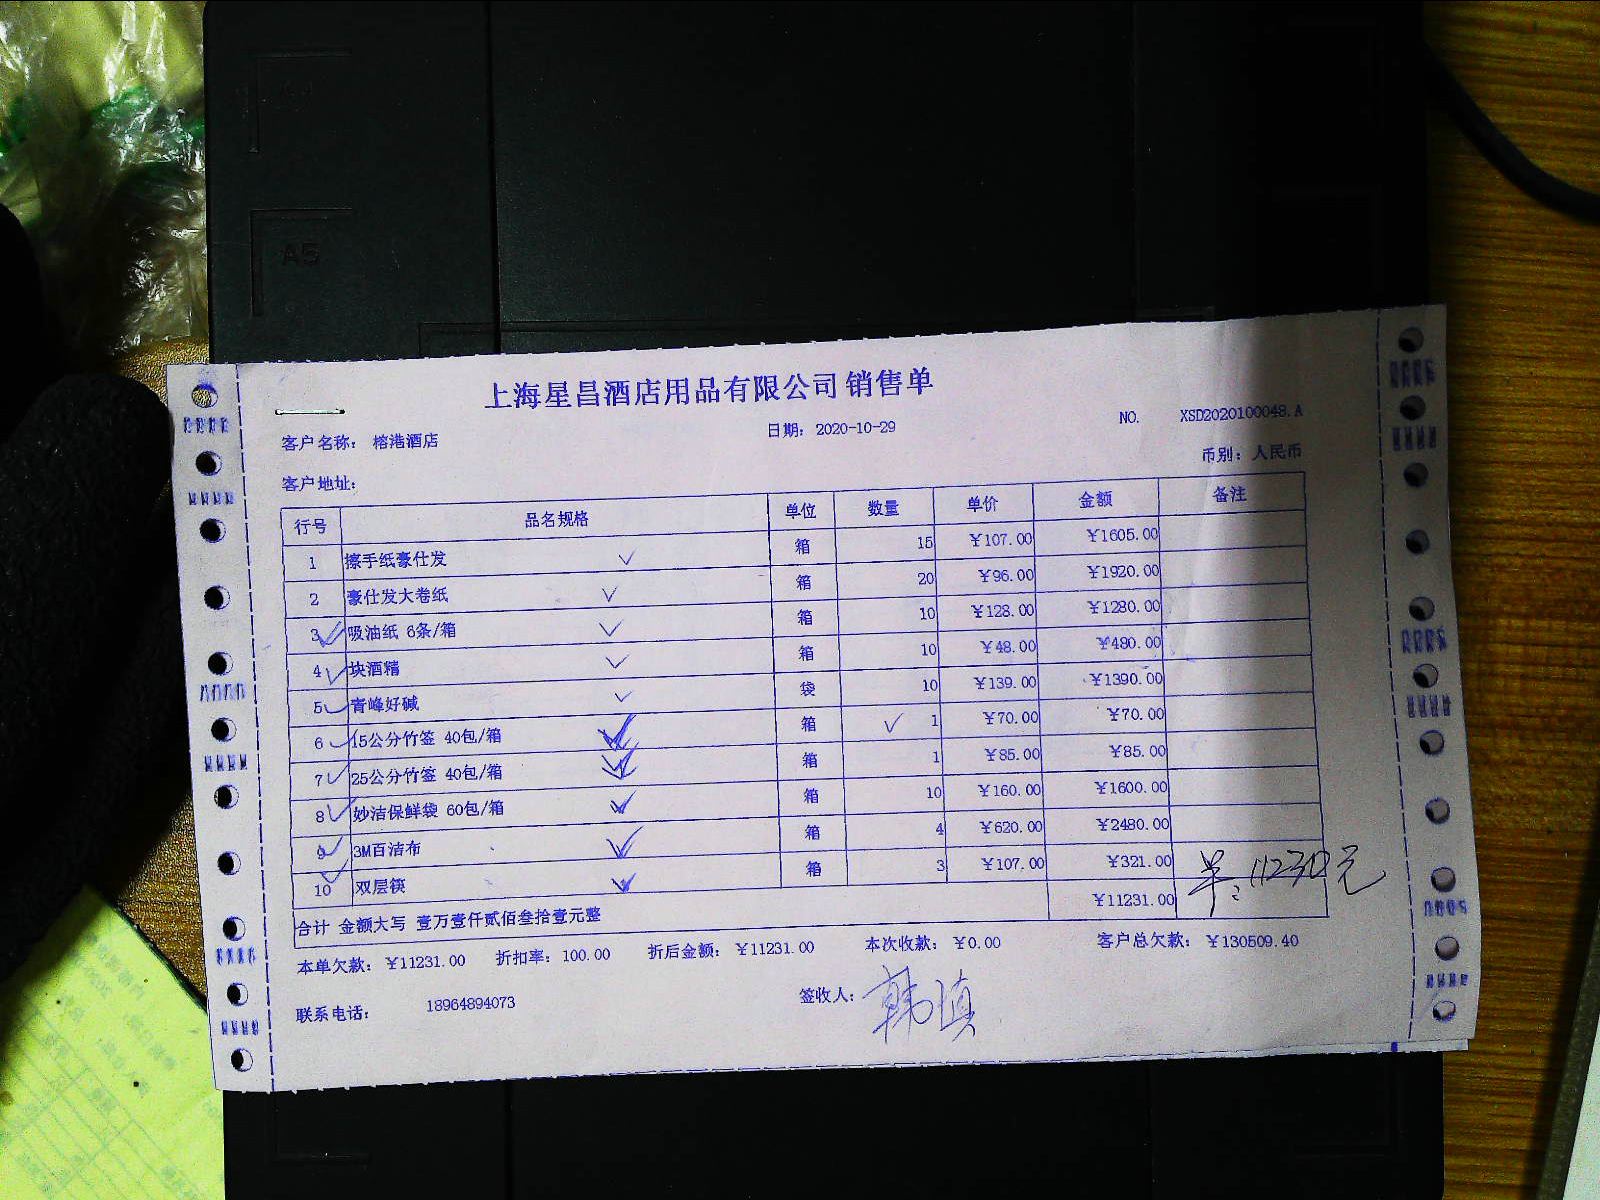 A5
上海星昌酒店用品有限公司 销售单
客户名称： 榕港酒店 日期： 2020-10-29 NO. XSD2020100048.A
客户地址： 币别：人民币
行号 品名规格 单位 数量 单价 金额 备注
1 擦手纸豪仕发 箱 15 ¥107.00 ¥1605.00
2 豪仕发大卷纸 箱 20 ¥96.00 ¥1920.00
3 吸油纸 6条/箱 箱 10 ¥128.00 ¥1280.00
4 块酒精 箱 10 ¥48.00 ¥480.00
5 青峰好碱 袋 10 ¥139.00 ¥1390.00
6 15公分竹签 40包/箱 箱 1 ¥70.00 ¥70.00
7 25公分竹签 40包/箱 箱 1 ¥85.00 ¥85.00
8 妙洁保鲜袋 60包/箱 箱 10 ¥160.00 ¥1600.00
9 3M百洁布 箱 4 ¥620.00 ¥2480.00
10 双层筷 箱 3 ¥107.00 ¥321.00
合计 金额大写 壹万壹仟贰佰叁拾壹元整 ¥11231.00
11230元
本单欠款：¥11231.00 折扣率：100.00 折后金额：¥11231.00 本次收款：¥0.00 客户总欠款：¥130509.40
联系电话： 18964894073 签收人：